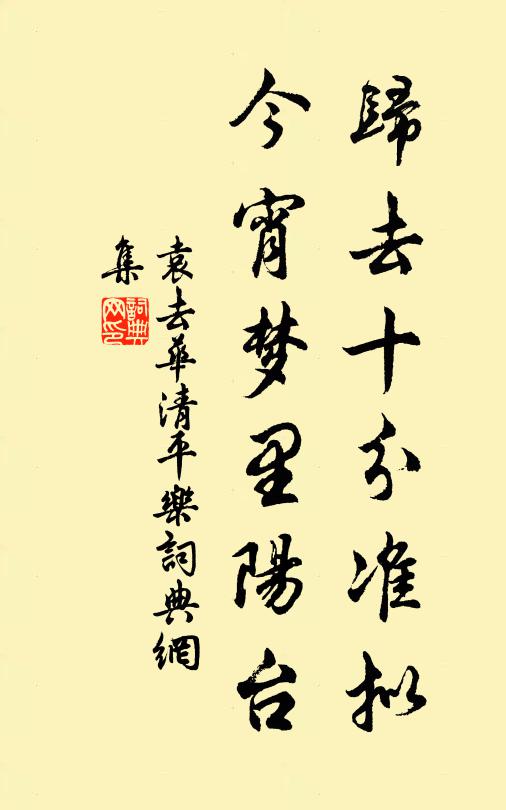 歸去十分准拟
今宵梦里陽台
袁去華清平樂詞典網
集
詞典网印